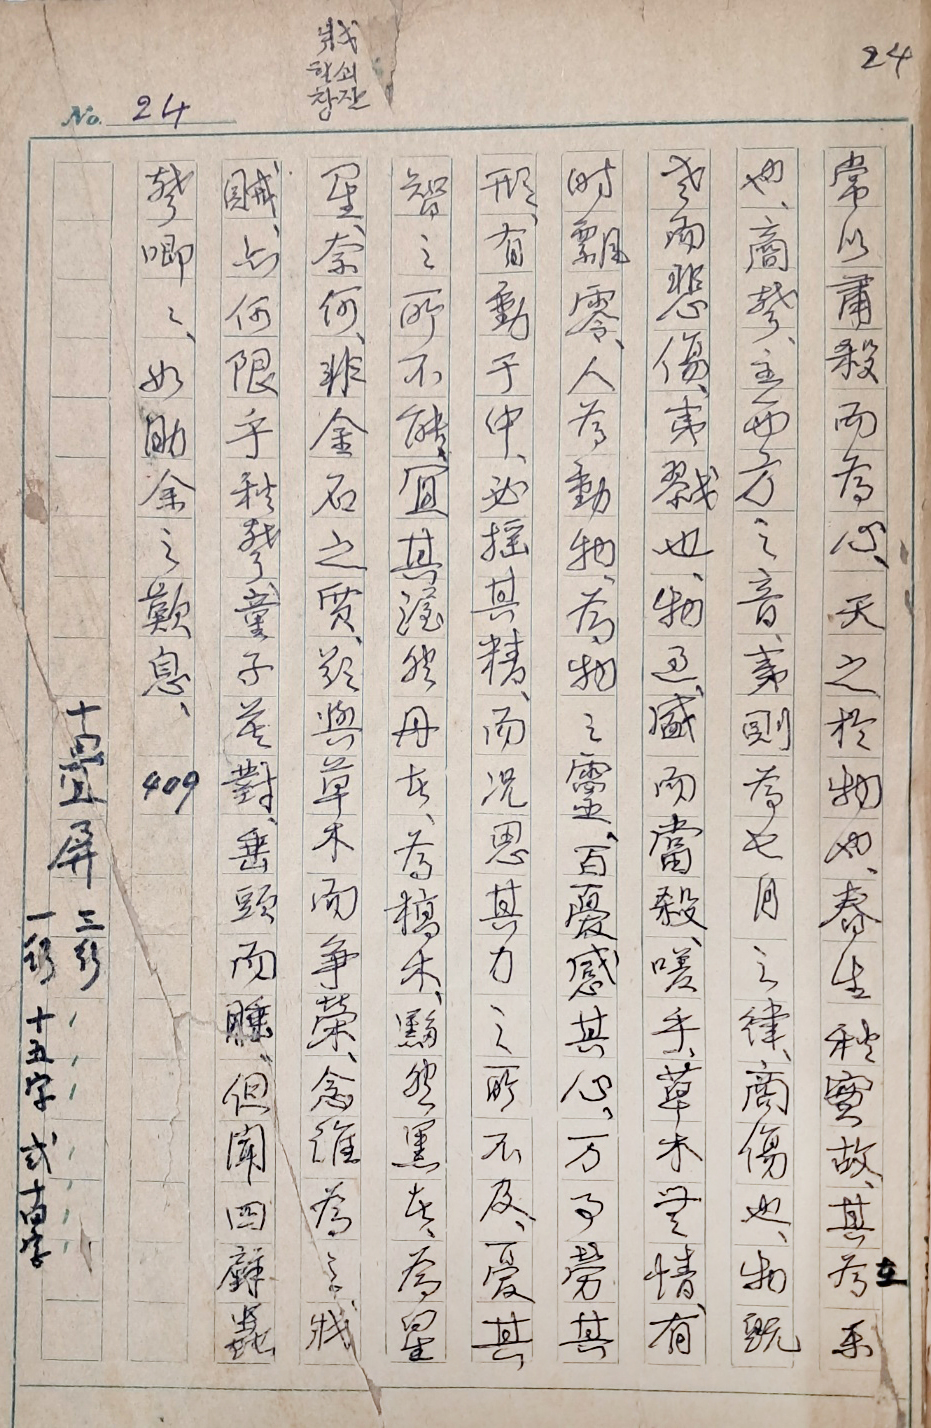 24
No. 24
戕
창잔
常以肅殺而為心、天之於物也、春生秋實故、其為在乐
也、商聲、主西方之音、夷則為七月之律、商傷也、物旣
老而悲傷、夷戮也、物過盛而當殺、嗟乎、草木無情、有
時飄零、人為動物、為物之靈、百憂感其心、万事勞其
形、有動于中、必搖其精、而況思其力之所不及、憂其
智之所不能、宜其渥然丹者、為槁木、黟然黑者、為星
星、奈何、非金石之質、欲與草木而爭榮、念誰為之戕
賊、亦何限乎秋聲、童子莫對、垂頭而睡、但聞四壁蟲
聲喞々、如助余之歎息、 409
十疊屏 三行
一行 十五字 弍十四字